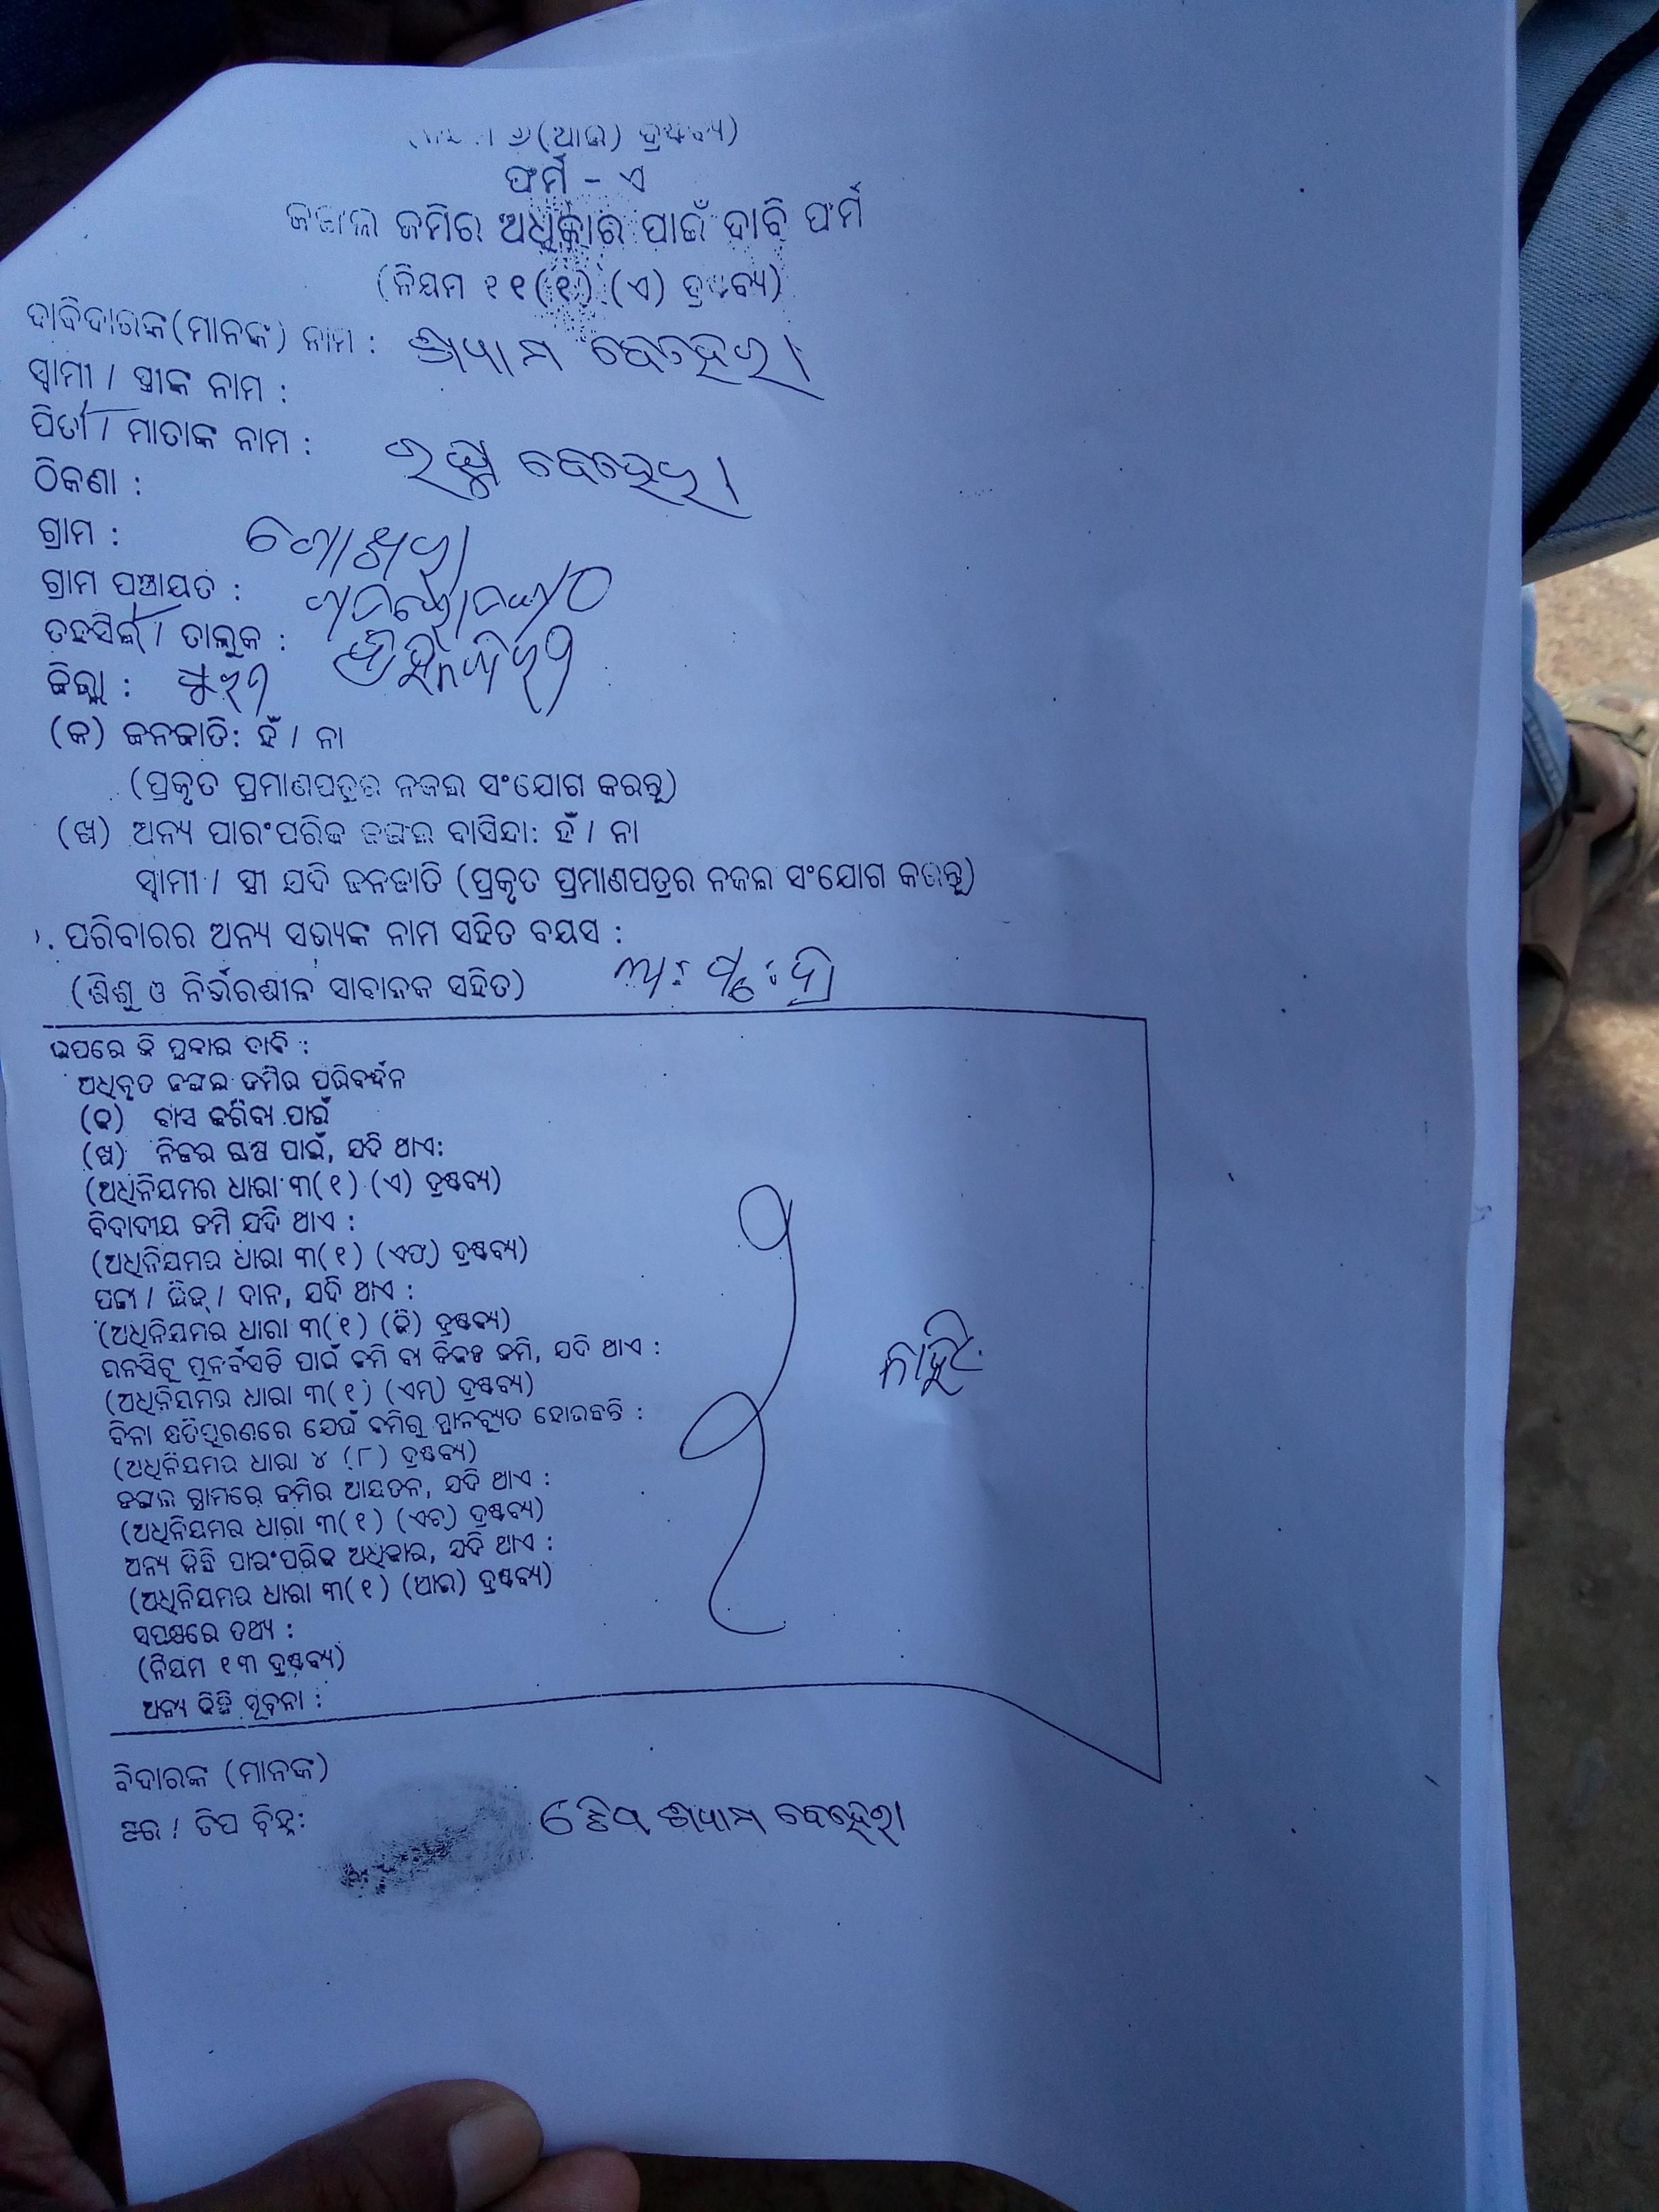 ୬(ଆଇ) ଦ୍ରଷ୍ଟବ୍ୟ)
ଫର୍ମ - ଏ
ଜଙ୍ଗଲ ଜମିର ଅଧିକାର ପାଇଁ ଦାବି ଫର୍ମ
(ନିୟମ ୧୧(୧) (ଏ) ଦ୍ରଷ୍ଟବ୍ୟ)
ଦାବିଦାରଙ୍କ(ମାନଙ୍କ) ନାମ : ଶ୍ୟାମ ବେହେରା
ସ୍ୱାମୀ / ସ୍ତ୍ରୀଙ୍କ ନାମ :
ପିତା / ମାତାଙ୍କ ନାମ : ବେହେରା
ଠିକଣା :
ଗ୍ରାମ :
ଗ୍ରାମ ପଞ୍ଚାୟତ :
ତହସିଲ୍ / ତାଲୁକ :
ଜିଲ୍ଲା : ପୁରୀ
(କ) ଜନଜାତି: ହଁ / ନା
(ପ୍ରକୃତ ପ୍ରମାଣପତ୍ରର ନକଲ ସଂଯୋଗ କରନ୍ତୁ)
(ଖ) ଅନ୍ୟ ପାରଂପରିକ ଜଙ୍ଗଲ ବାସିନ୍ଦା: ହଁ / ନା
ସ୍ୱାମୀ / ସ୍ତ୍ରୀ ଯଦି ଜନଜାତି (ପ୍ରକୃତ ପ୍ରମାଣପତ୍ରର ନକଲ ସଂଯୋଗ କରନ୍ତୁ)
. ପରିବାରର ଅନ୍ୟ ସଭ୍ୟଙ୍କ ନାମ ସହିତ ବୟସ :
(ଶିଶୁ ଓ ନିର୍ଭରଶୀଳ ସାବାଳକ ସହିତ)
ଉପରେ କି ପ୍ରକାର ଦାବି :
ଅଧିକୃତ ଜଙ୍ଗଲ ଜମିର ପରିବର୍ଦ୍ଧନ
(କ) ବାସ କରିବା ପାଇଁ
(ଖ) ନିଜର ଚାଷ ପାଇଁ, ଯଦି ଥାଏ:
(ଅଧିନିୟମର ଧାରା ୩(୧) (ଏ) ଦ୍ରଷ୍ଟବ୍ୟ)
ବିବାଦୀୟ ଜମି ଯଦି ଥାଏ :
(ଅଧିନିୟମର ଧାରା ୩(୧) (ଏଫ୍) ଦ୍ରଷ୍ଟବ୍ୟ)
ପଟ୍ଟା / ଲିଜ୍ / ଦାନ, ଯଦି ଥାଏ :
(ଅଧିନିୟମର ଧାରା ୩(୧) (ଜି) ଦ୍ରଷ୍ଟବ୍ୟ)
ଇନସିଟୁ ପୁନର୍ବସତି ପାଇଁ ଜମି ବା ବିକଳ୍ପ ଜମି, ଯଦି ଥାଏ :
(ଅଧିନିୟମର ଧାରା ୩(୧) (ଏମ୍) ଦ୍ରଷ୍ଟବ୍ୟ) ନାହିଁ
ବିନା କ୍ଷତିପୂରଣରେ ଯେଉଁ ଜମିରୁ ସ୍ଥାନଚ୍ୟୁତ ହୋଇଛନ୍ତି :
(ଅଧିନିୟମର ଧାରା ୪ (୮) ଦ୍ରଷ୍ଟବ୍ୟ)
ଜଙ୍ଗଲ ଗ୍ରାମରେ ଜମିର ଆୟତନ, ଯଦି ଥାଏ :
(ଅଧିନିୟମର ଧାରା ୩(୧) (ଏଚ୍) ଦ୍ରଷ୍ଟବ୍ୟ)
ଅନ୍ୟ କିଛି ପାରଂପରିକ ଅଧିକାର, ଯଦି ଥାଏ :
(ଅଧିନିୟମର ଧାରା ୩(୧) (ଆଇ) ଦ୍ରଷ୍ଟବ୍ୟ)
ସପକ୍ଷରେ ତଥ୍ୟ :
(ନିୟମ ୧୩ ଦ୍ରଷ୍ଟବ୍ୟ)
ଅନ୍ୟ କିଛି ସୂଚନା :
ବିଦାରଙ୍କ (ମାନଙ୍କ)
କ୍ଷର / ଟିପ ଚିହ୍ନ: ଶ୍ୟାମ ବେହେରା